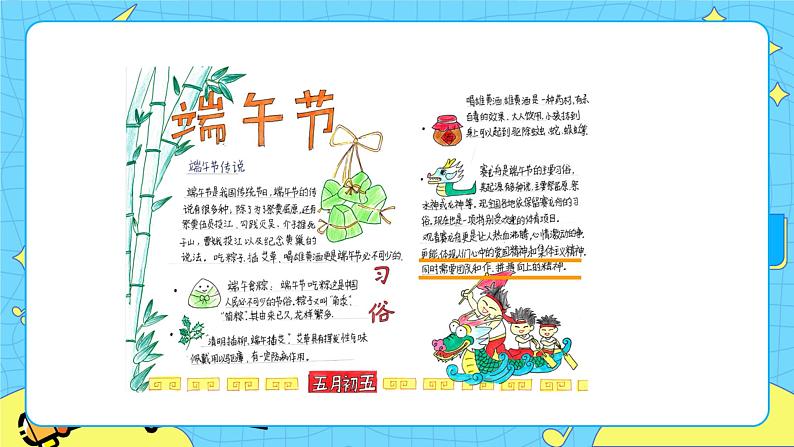 端午节
端午节传说
端午节是我国传统节日,端午节的传
说有很多种,除了为了祭奠屈原,还有
祭奠伍员投江、勾践灭吴、介子推死
于山,曹娥投江以及纪念黄巢的
说法。吃粽子、插艾草、喝雄黄酒更是端午节必不可少的。
习俗
端午食粽:端午节吃粽这是中国
人民必不可少的节俗,粽子又叫"角黍"
"筒粽"。其由来已久,花样繁多。
"清明插柳,端午插艾"艾草具有挥发性气味
佩戴用以驱瘴,有一定防病作用。
五月初五
喝雄黄酒 雄黄酒是一种药材,有杀
百毒的效果、大人饮用,小孩抹到
身上可以起到驱除蚊虫、蛇、蜈蚣等.
赛龙舟是端午节的主要习俗,
其起源有多种说,主要祭屈原、祭
水神或龙神等,现全国各地依保留赛龙舟的习
俗。现在也是一项特别受欢迎的体育项目。
观看赛龙舟更是让人热血沸腾,心情激动的事,
更能体现人们心中的爱国精神和集体主义精神,
同时需要团队和作、并携向上的精神。